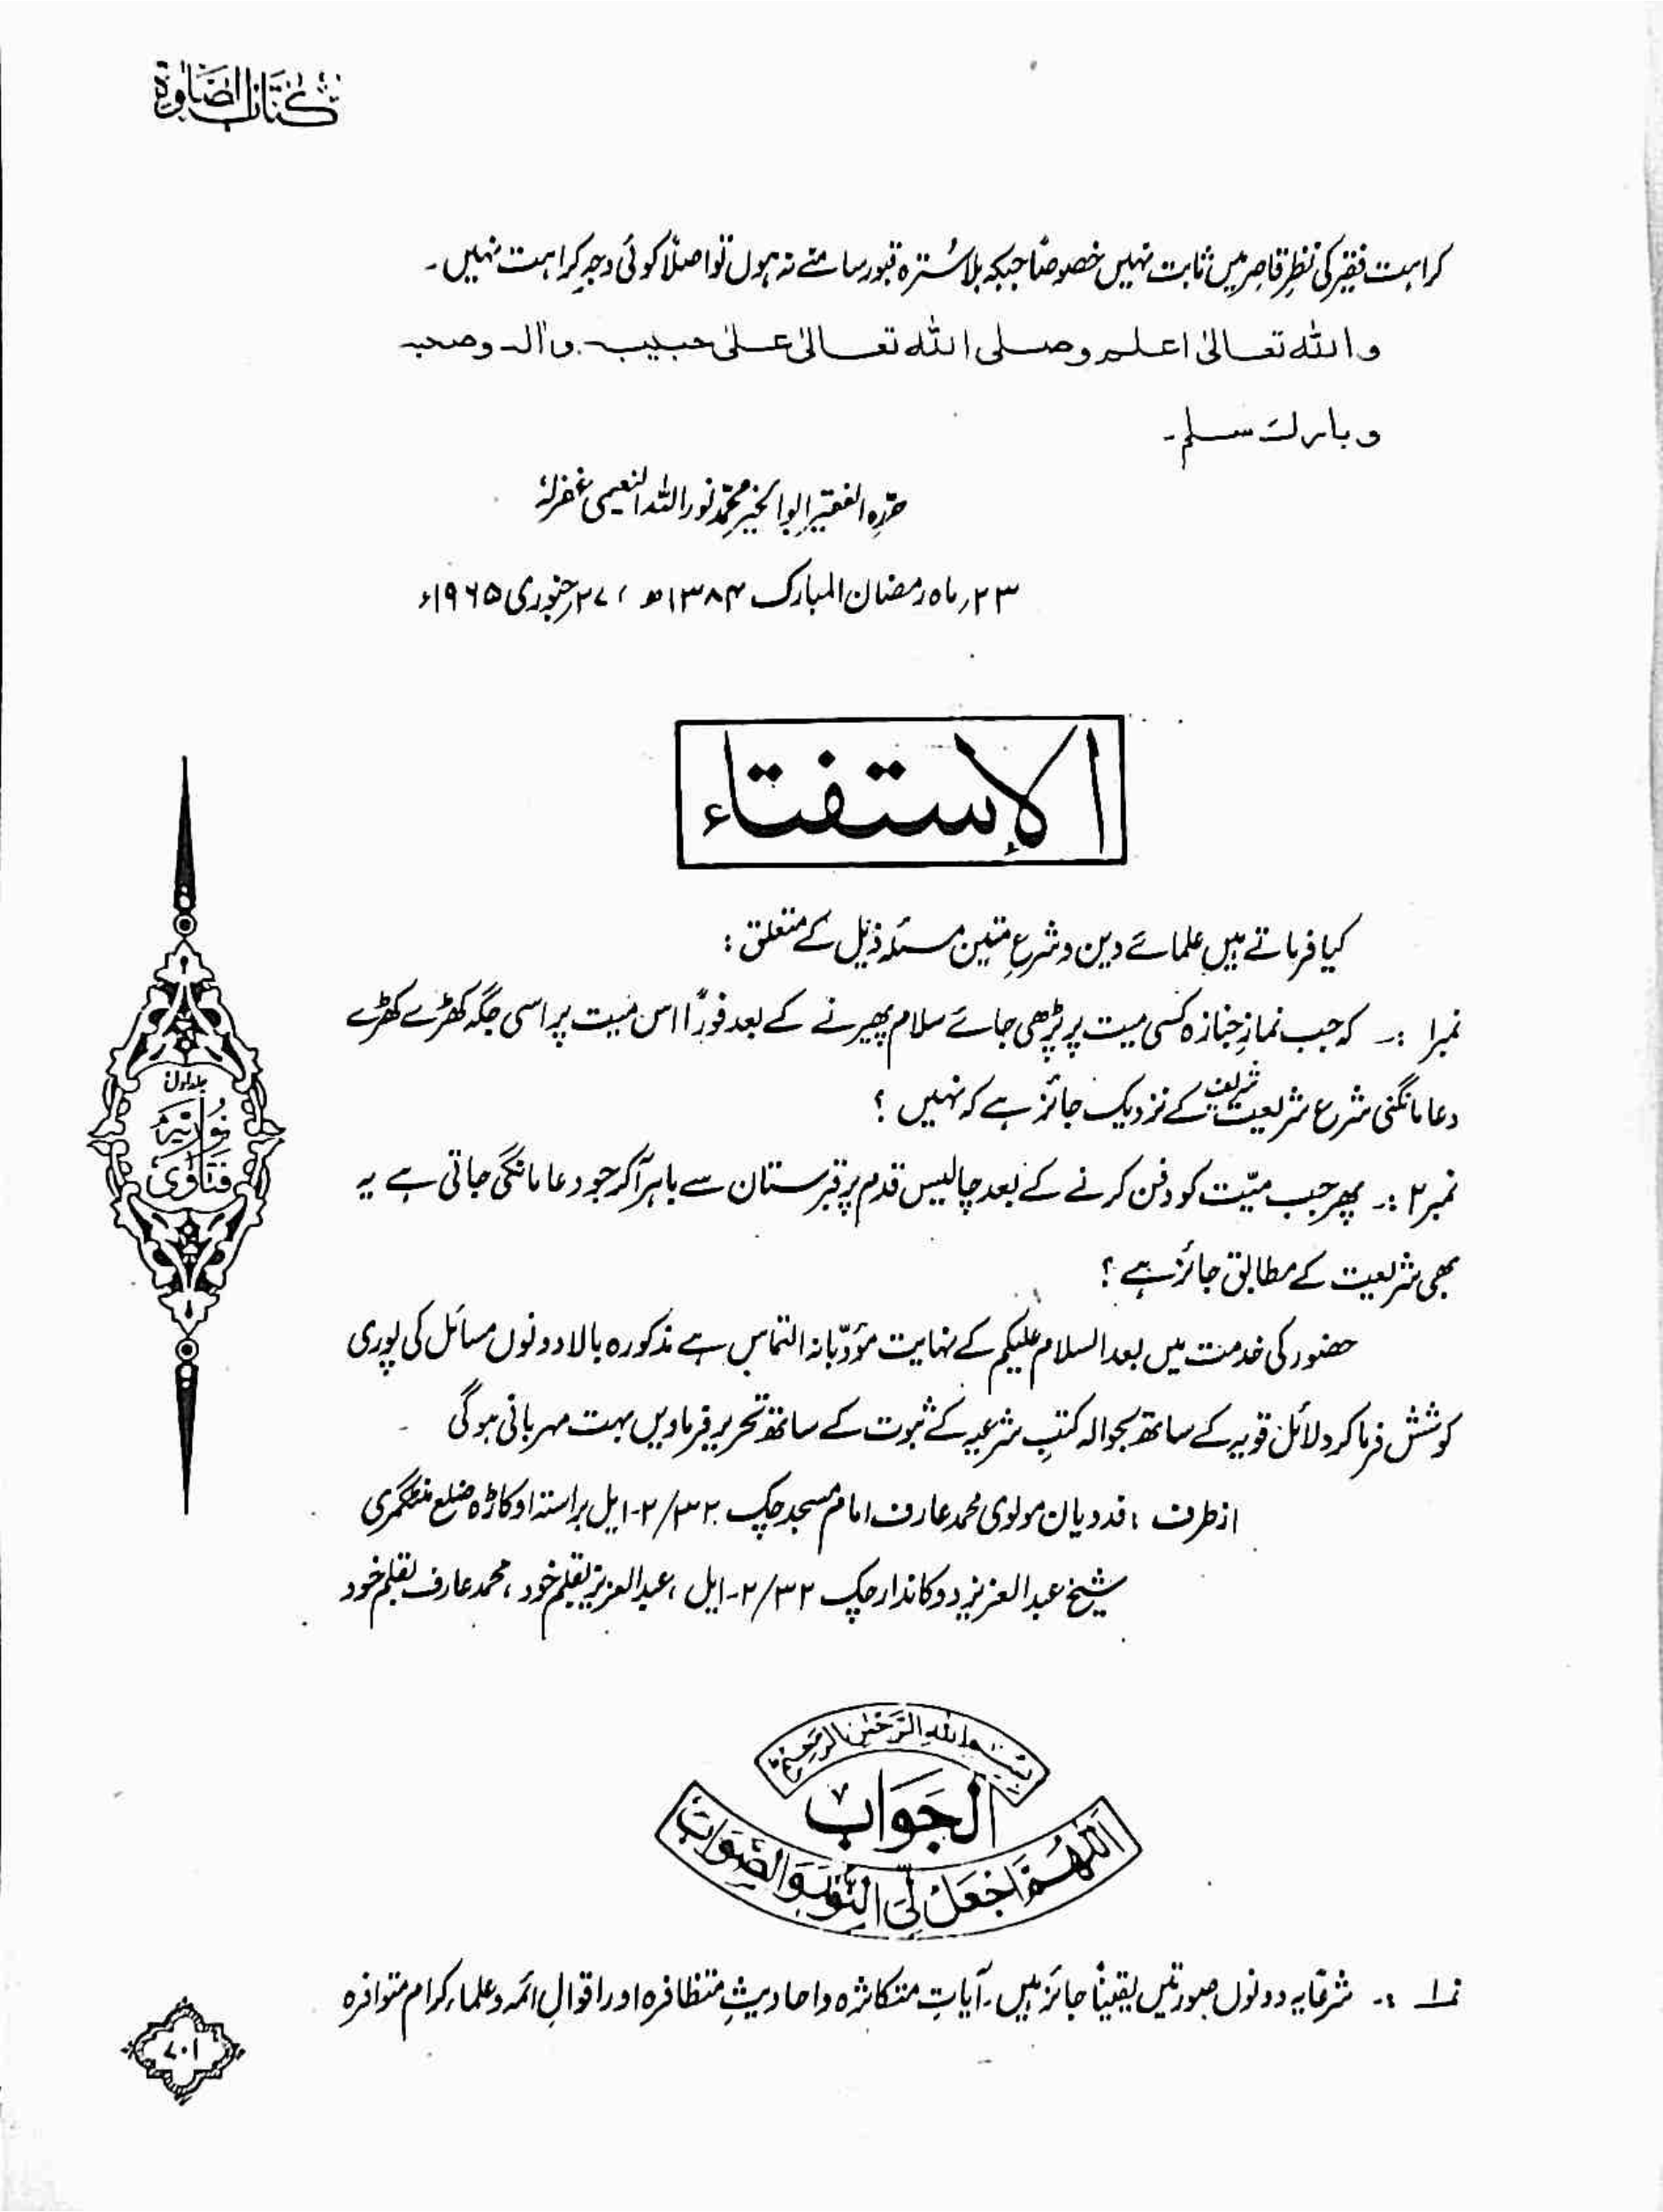 كتاب الصلوة
کراہت فقیر کی نظرِ قاصر میں ثابت نہیں خصوصًا جبکہ بلا سُترہ قبور سامنے نہ ہوں تو اصلًا کوئی وجہِ کراہت نہیں۔
واللہ تعالیٰ اعلم وصلی اللہ تعالیٰ علیٰ حبیبہ وآلہ وصحبہ
وبارك سلم۔
حرّرہ الفقیر ابوالخیر محمّد نوراللہ النعیمی غفرلہٗ
۲۳؍ماہ رمضان المبارک ۱۳۸۴ھ، ۲۷؍جنوری ۱۹۶۵ء
الإستفتاء
کیا فرماتے ہیں علمائے دین و شرعِ متین مسئلہ ذیل کے متعلق :
نمبر۱ :۔ کہ جب نمازِ جنازہ کسی میت پر پڑھی جائے سلام پھیرنے کے بعد فورًا اس میت پر اسی جگہ کھڑے کھڑے
دعا مانگنی شرع شریعت شریف کے نزدیک جائز ہے کہ نہیں ؟
نمبر۲ :۔ پھر جب میّت کو دفن کرنے کے بعد چالیس قدم پر قبرستان سے باہر آکر جو دعا مانگی جاتی ہے یہ
بھی شریعت کے مطابق جائز ہے ؟
حضور کی خدمت میں بعد السلام علیکم کے نہایت مؤدّبانہ التماس ہے مذکورہ بالا دونوں مسائل کی پوری
کوشش فرما کر دلائل قویہ کے ساتھ بحوالہ کتبِ شرعیہ کے ثبوت کے ساتھ تحریر فرماویں بہت مہربانی ہوگی ۔
از طرف : فدویان مولوی محمد عارف امام مسجد چک ۲/۳۲-ایل براستہ اوکاڑہ ضلع منٹگمری
شیخ عبدالعزیز دوکاندار چک ۲/۳۲-ایل، عبدالعزیز بقلم خود، محمد عارف بقلم خود
جلد اول
نوریہ
فتاویٰ
بسم الله الرحمٰن الرحيم
الجواب
اللهم اجعل لي النور والصواب
نمبر۱ :۔ شرعًا یہ دونوں صورتیں یقینًا جائز ہیں۔ آیاتِ متکاثرہ و احادیثِ متظافرہ اور اقوالِ ائمہ و علماء کرام متوافرہ
۷۰۱